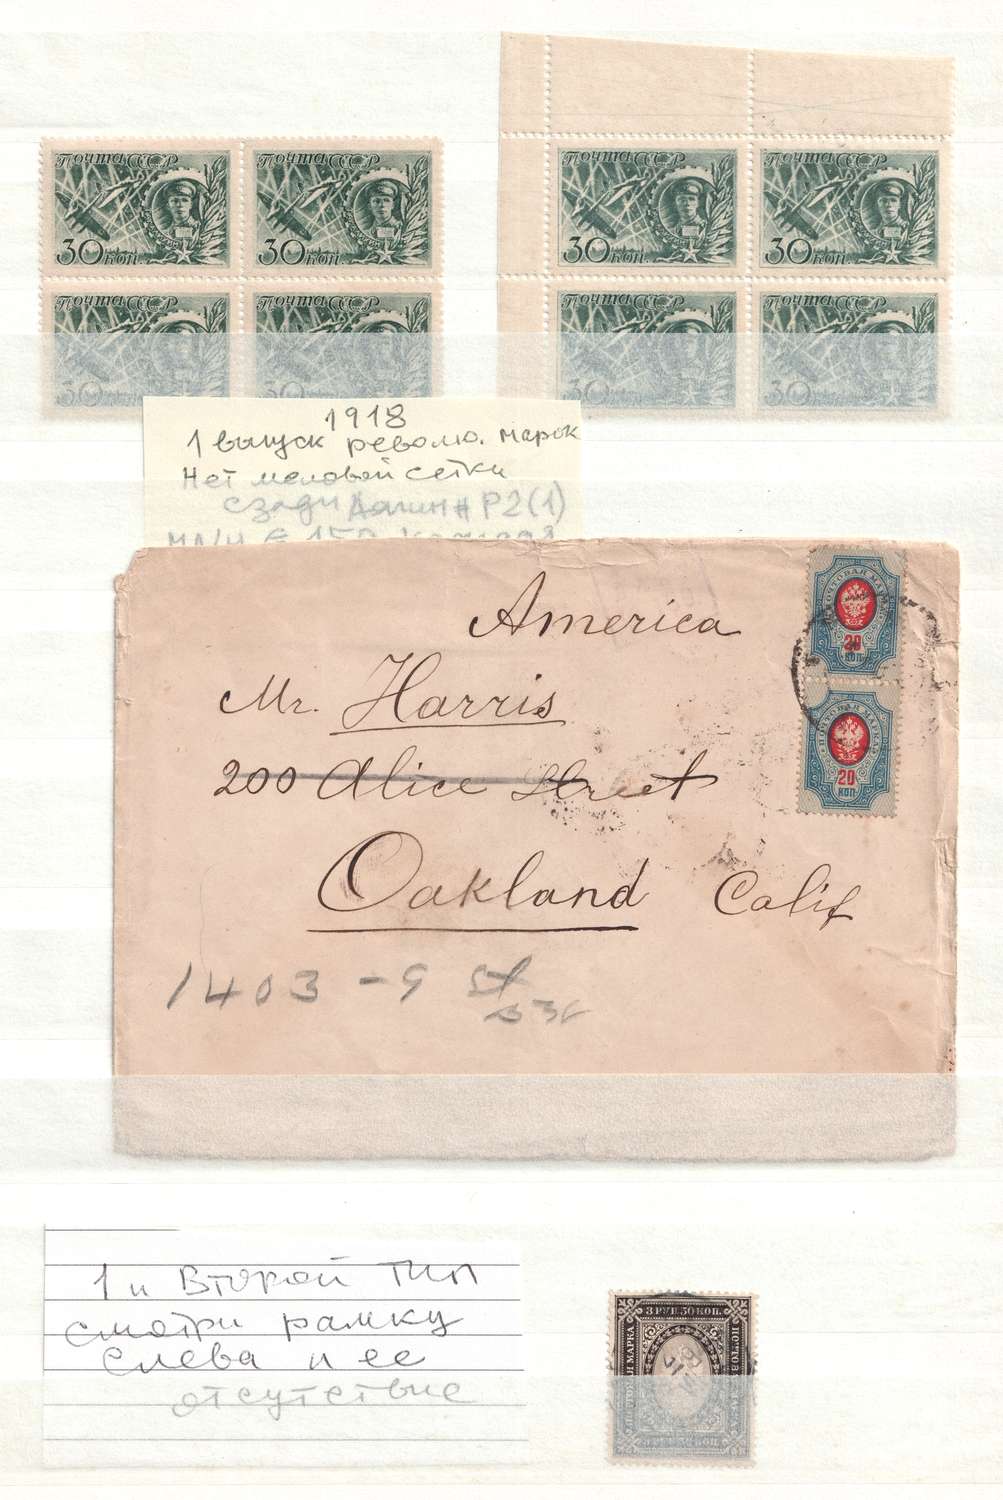 Почта СССР
30 коп.
Почта СССР
30 коп.
Почта СССР
30
Почта СССР
30
Почта СССР
30 коп.
Почта СССР
30 коп.
Почта СССР
30
Почта СССР
30
1918
1 выпуск револю. марок
Нет меловой сетки
сзади P2(1)
America
Mr. Harris
200 Alice Street
Oakland Calif
1403 - 9 St
ПОЧТОВАЯ МАРКА
20
КОП
ПОЧТОВАЯ МАРКА
20
КОП
1 и Второй тип
смотри рамку
слева и ее
отсутствие
3 РУП. 50 КОП.